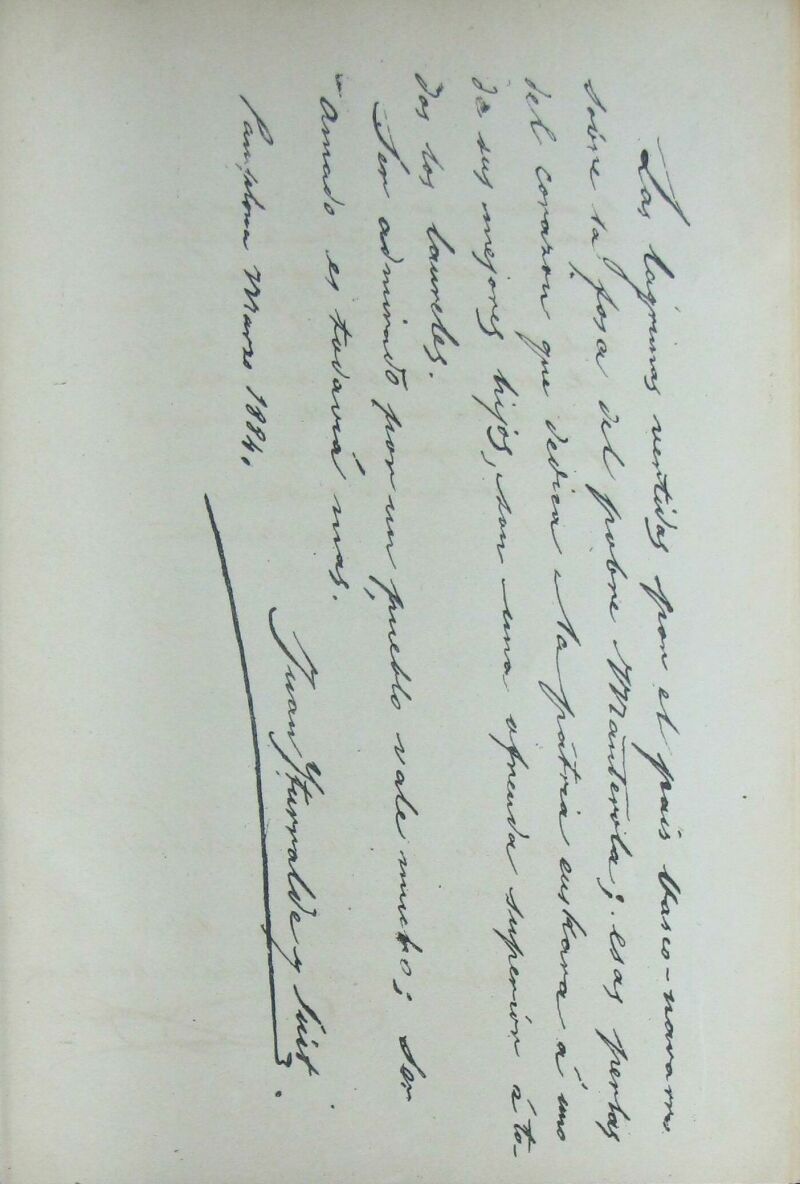 Las lágrimas vertidas por el país basco-navarro
sobre la fosa del pobre Manterola; esas perlas
del corazon que dedica la pátria euskara á uno
de sus mejores hijos, son una ofrenda superior á to-
dos los laureles.
Ser admirado por un pueblo vale mucho; ser
amado es todavía mas.
Pamplona Marzo 1884.
Juan Yturralde y Suit.